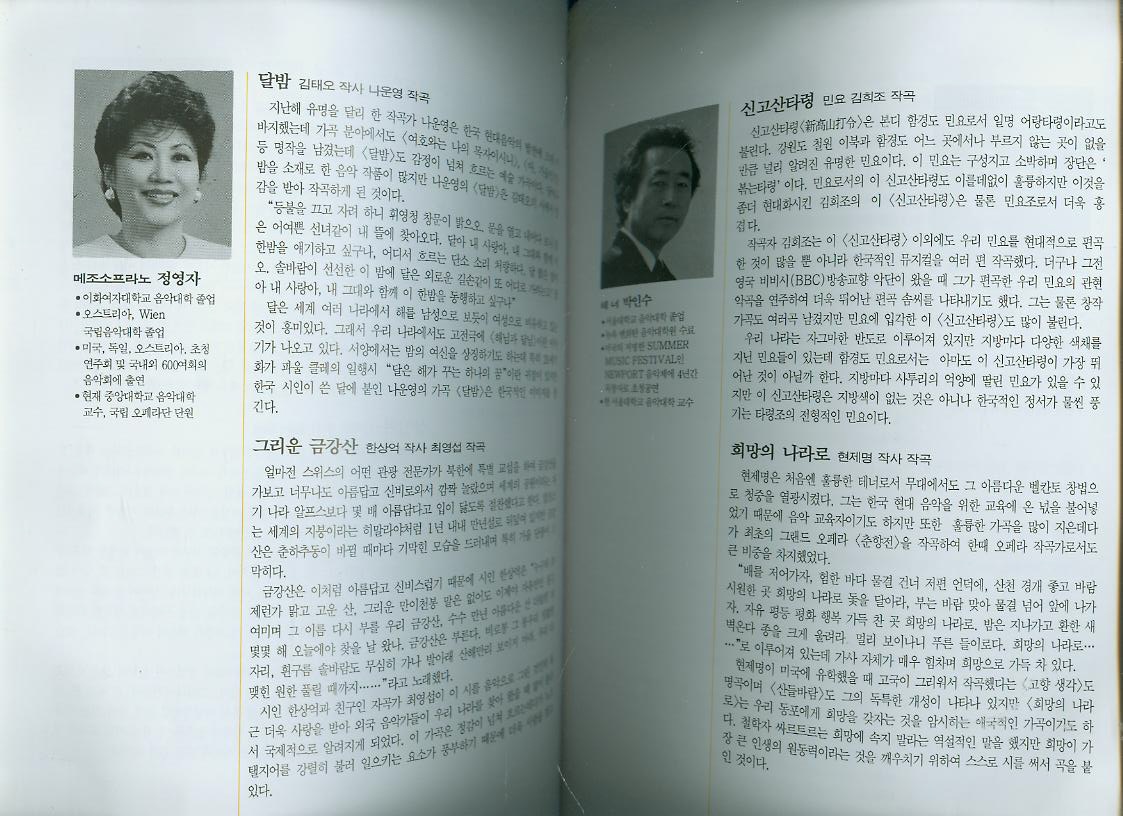 메조소프라노 정영자
• 이화여자대학교 음악대학 졸업
• 오스트리아, Wien
국립음악대학 졸업
• 미국, 독일, 오스트리아, 초청
연주회 및 국내외 600여회의
음악회에 출연
• 현재 중앙대학교 음악대학
교수, 국립 오페라단 단원
달밤 김태오 작사 나운영 작곡
지난해 유명을 달리 한 작곡가 나운영은 한국 현대음악의
바지했는데 가곡 분야에서도 〈여호와는 나의 목자이시니〉,
등 명작을 남겼는데 〈달밤〉도 감정이 넘쳐 흐르는 예술
밤을 소재로 한 음악 작품이 많지만 나운영의 〈달밤〉은 김태오의
감을 받아 작곡하게 된 것이다.
“등불을 끄고 자려 하니 휘영청 창문이 밝으오. 문을 열고
은 어여쁜 선녀같이 내 뜰에 찾아오다. 달아 내 사랑아, 내 그대와 함께
한밤을 얘기하고 싶구나, 어디서 흐르는 단소 소리 처량하다.
오, 솔바람이 선선한 이 밤에 달은 외로운 길손같이 또 어디로
아 내 사랑아, 내 그대와 함께 이 한밤을 동행하고 싶구나”
달은 세계 여러 나라에서 해를 남성으로 보듯이 여성으로
것이 흥미있다. 그래서 우리 나라에서도 고전극에 〈해님과 달님〉
기가 나오고 있다. 서양에서는 밤의 여신을 상징하기도 하는데
화가 파울 클레의 일행시 “달은 해가 꾸는 하나의 꿈”이란
한국 시인이 쓴 달에 붙인 나운영의 가곡 〈달밤〉은 한국적인
긴다.
그리운 금강산 한상억 작사 최영섭 작곡
얼마전 스위스의 어떤 관광 전문가가 북한에 특별 교섭을 하여
가보고 너무나도 아름답고 신비로와서 깜짝 놀랐으며 세계의
기 나라 알프스보다 몇 배 아름답다고 입이 닳도록 절찬했다고 한다.
는 세계의 지붕이라는 히말라야처럼 1년 내내 만년설로 뒤덮여
산은 춘하추동이 바뀔 때마다 기막힌 모습을 드러내며 특히 가을
막히다.
금강산은 이처럼 아름답고 신비스럽기 때문에 시인 한상억은 “누구의
제런가 맑고 고운 산, 그리운 만이천봉 말은 없어도 이제야
여미며 그 이름 다시 부를 우리 금강산, 수수 만년 아름다운 산
몇몇 해 오늘에야 찾을 날 왔나, 금강산은 부른다. 비로봉 그 봉우리
자리, 흰구름 솔바람도 무심히 가나 발아래 산해만리 보이지 마라,
맺힌 원한 풀릴 때까지……”라고 노래했다.
시인 한상억과 친구인 자곡가 최영섭이 이 시를 음악으로
근 더욱 사랑을 받아 외국 음악가들이 우리 나라를 찾아
서 국제적으로 알려지게 되었다. 이 가곡은 정감이 넘쳐
탤지어를 강렬히 불러 일으키는 요소가 풍부하기 때문에 더욱
있다.
테너 박인수
• 서울대학교 음악대학 졸업
음악대학원 수료
SUMMER
MUSIC FESTIVAL인
NEWPORT 음악제에 4년간
초청공연
• 현 서울대학교 음악대학 교수
신고산타령 민요 김희조 작곡
신고산타령〈新高山打令〉은 본디 함경도 민요로서 일명 어랑타령이라고도
불린다. 강원도 철원 이북과 함경도 어느 곳에서나 부르지 않는 곳이 없을
만큼 널리 알려진 유명한 민요이다. 이 민요는 구성지고 소박하며 장단은 ‘
볶는타령’ 이다. 민요로서의 이 신고산타령도 이를데없이 훌륭하지만 이것을
좀더 현대화시킨 김희조의 이 〈신고산타령〉은 물론 민요조로서 더욱 흥
겹다.
작곡자 김희조는 이 〈신고산타령〉 이외에도 우리 민요를 현대적으로 편곡
한 것이 많을 뿐 아니라 한국적인 뮤지컬을 여러 편 작곡했다. 더구나 그전
영국 비비시(BBC)방송교향 악단이 왔을 때 그가 편곡한 우리 민요의 관현
악곡을 연주하여 더욱 뛰어난 편곡 솜씨를 나타내기도 했다. 그는 물론 창작
가곡도 여러곡 남겼지만 민요에 입각한 이 〈신고산타령〉도 많이 불린다.
우리 나라는 자그마한 반도로 이루어져 있지만 지방마다 다양한 색채를
지닌 민요들이 있는데 함경도 민요로서는 아마도 이 신고산타령이 가장 뛰
어난 것이 아닐까 한다. 지방마다 사투리의 억양에 딸린 민요가 있을 수 있
지만 이 신고산타령은 지방색이 없는 것은 아니나 한국적인 정서가 물씬 풍
기는 타령조의 전형적인 민요이다.
희망의 나라로 현제명 작사 작곡
현제명은 처음엔 훌륭한 테너로서 무대에서도 그 아름다운 벨칸토 창법으
로 청중을 열광시켰다. 그는 한국 현대 음악을 위한 교육에 온 넋을 불어넣
었기 때문에 음악 교육자이기도 하지만 또한 훌륭한 가곡을 많이 지은데다
가 최초의 그랜드 오페라 〈춘향전〉을 작곡하여 한때 오페라 작곡가로서도
큰 비중을 차지했었다.
“배를 저어가자, 험한 바다 물결 건너 저편 언덕에, 산천 경개 좋고 바람
시원한 곳 희망의 나라로 돛을 달아라, 부는 바람 맞아 물결 넘어 앞에 나가
자, 자유 평등 평화 행복 가득 찬 곳 희망의 나라로. 밤은 지나가고 환한 새
벽온다 종을 크게 울려라. 멀리 보이나니 푸른 들이로다. 희망의 나라로…
…”로 이루어져 있는데 가사 자체가 매우 힘차며 희망으로 가득 차 있다.
현제명이 미국에 유학했을 때 고국이 그리워서 작곡했다는 〈고향 생각〉도
명곡이며 〈산들바람〉도 그의 독특한 개성이 나타나 있지만 〈희망의 나라
로〉는 우리 동포에게 희망을 갖자는 것을 암시하는 애국적인 가곡이기도 하
다. 철학자 싸르트르는 희망에 속지 말라는 역설적인 말을 했지만 희망이 가
장 큰 인생의 원동력이라는 것을 깨우치기 위하여 스스로 시를 써서 곡을 붙
인 것이다.